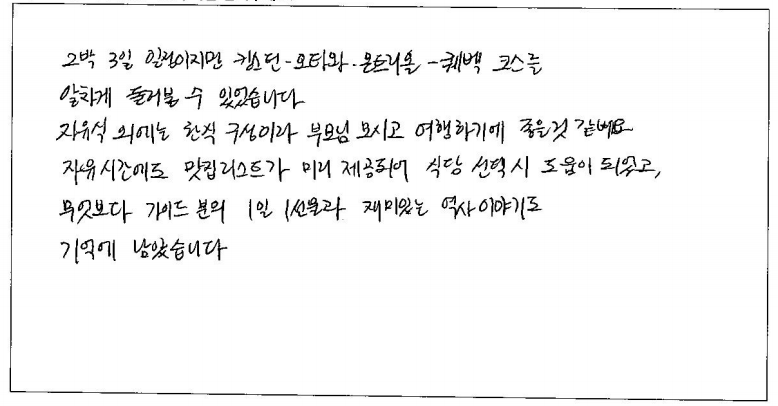 2박 3일 일정이지만 킹스턴-오타와-몬트리올-퀘벡 코스를
알차게 둘러볼 수 있었습니다
자유식 외에는 한식 구성이라 부모님 모시고 여행하기에 좋은것 같네요
자유시간에도 맛집리스트가 미리 제공되어 식당 선택시 도움이 되었고,
무엇보다 가이드 분의 1일 1선물과 재미있는 역사이야기도
기억에 남았습니다